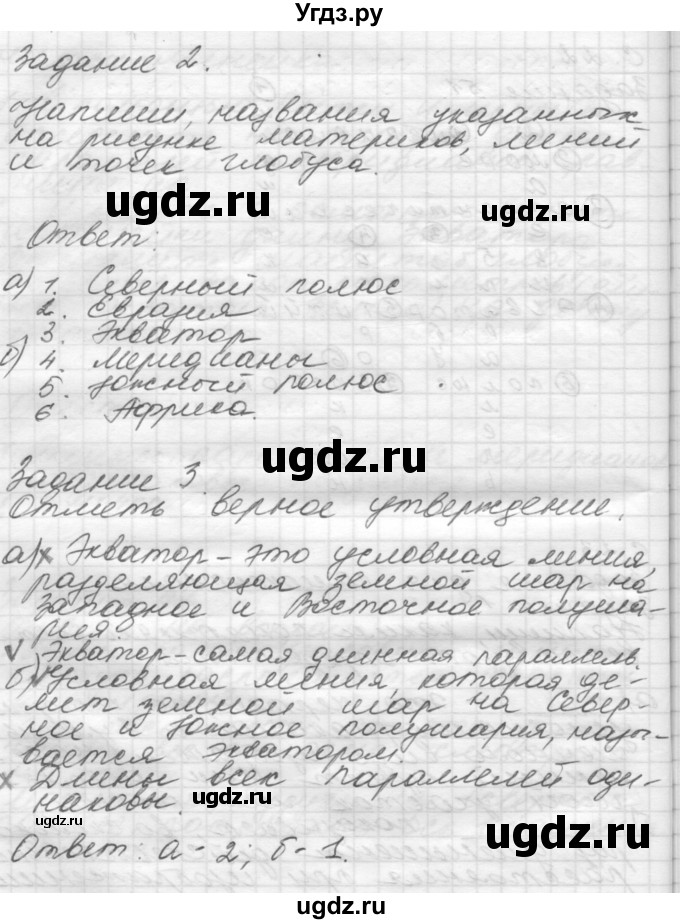 Угдз.ру
Задание 2.
Напиши названия указанных
на рисунке материков, линий
и точек глобуса.
ugdz.ru
ugdz.ru
Ответ:
а) 1. Северный полюс
2. Евразия
3. Экватор
б) 4. Меридианы
5. Южный полюс
6. Африка.
ugdz.ru
Задание 3
Отметь верное утверждение.
а) x Экватор - это условная линия,
разделяющая земной шар на
Западное и Восточное полуша-
рия.
v Экватор - самая длинная параллель.
б) v Условная линия, которая де-
лит земной шар на Север-
ное и Южное полушария, назы-
вается экватором.
x Длины всех параллелей оди-
наковы.
ugdz.ru
ugdz.ru
ugdz.ru
Ответ: а - 2; б - 1.
ugdz.ru